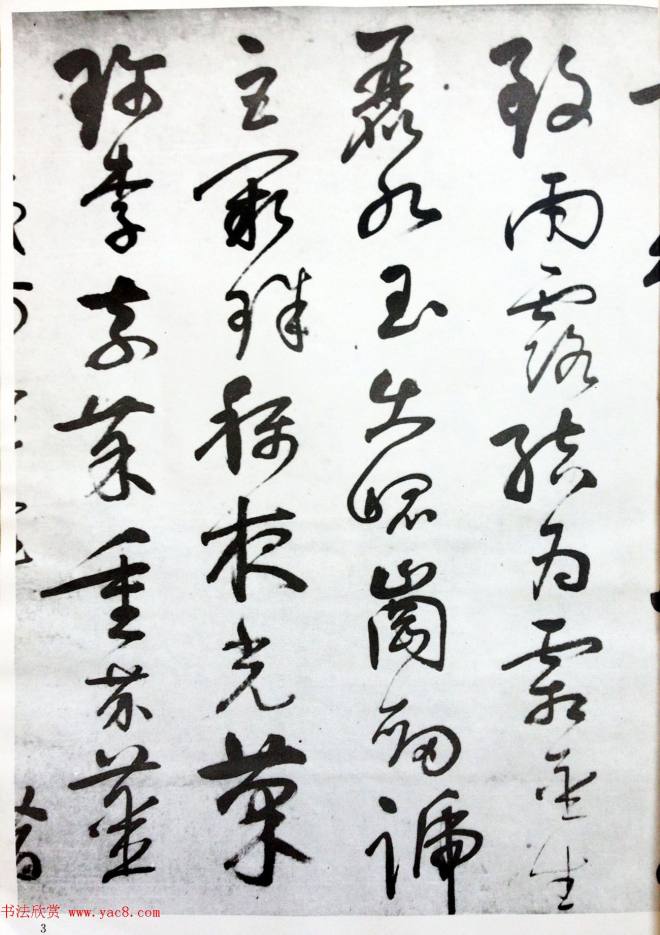 致雨露結為霜金生
麗水玉出崐崗劍號
巨闕珠稱夜光菓
珍李柰菜重芥薑
书法欣赏 www.yac8.com
3